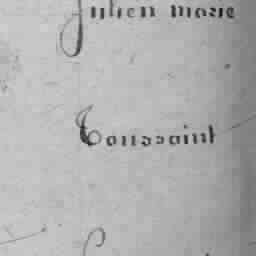 Julien marie
Toussaint